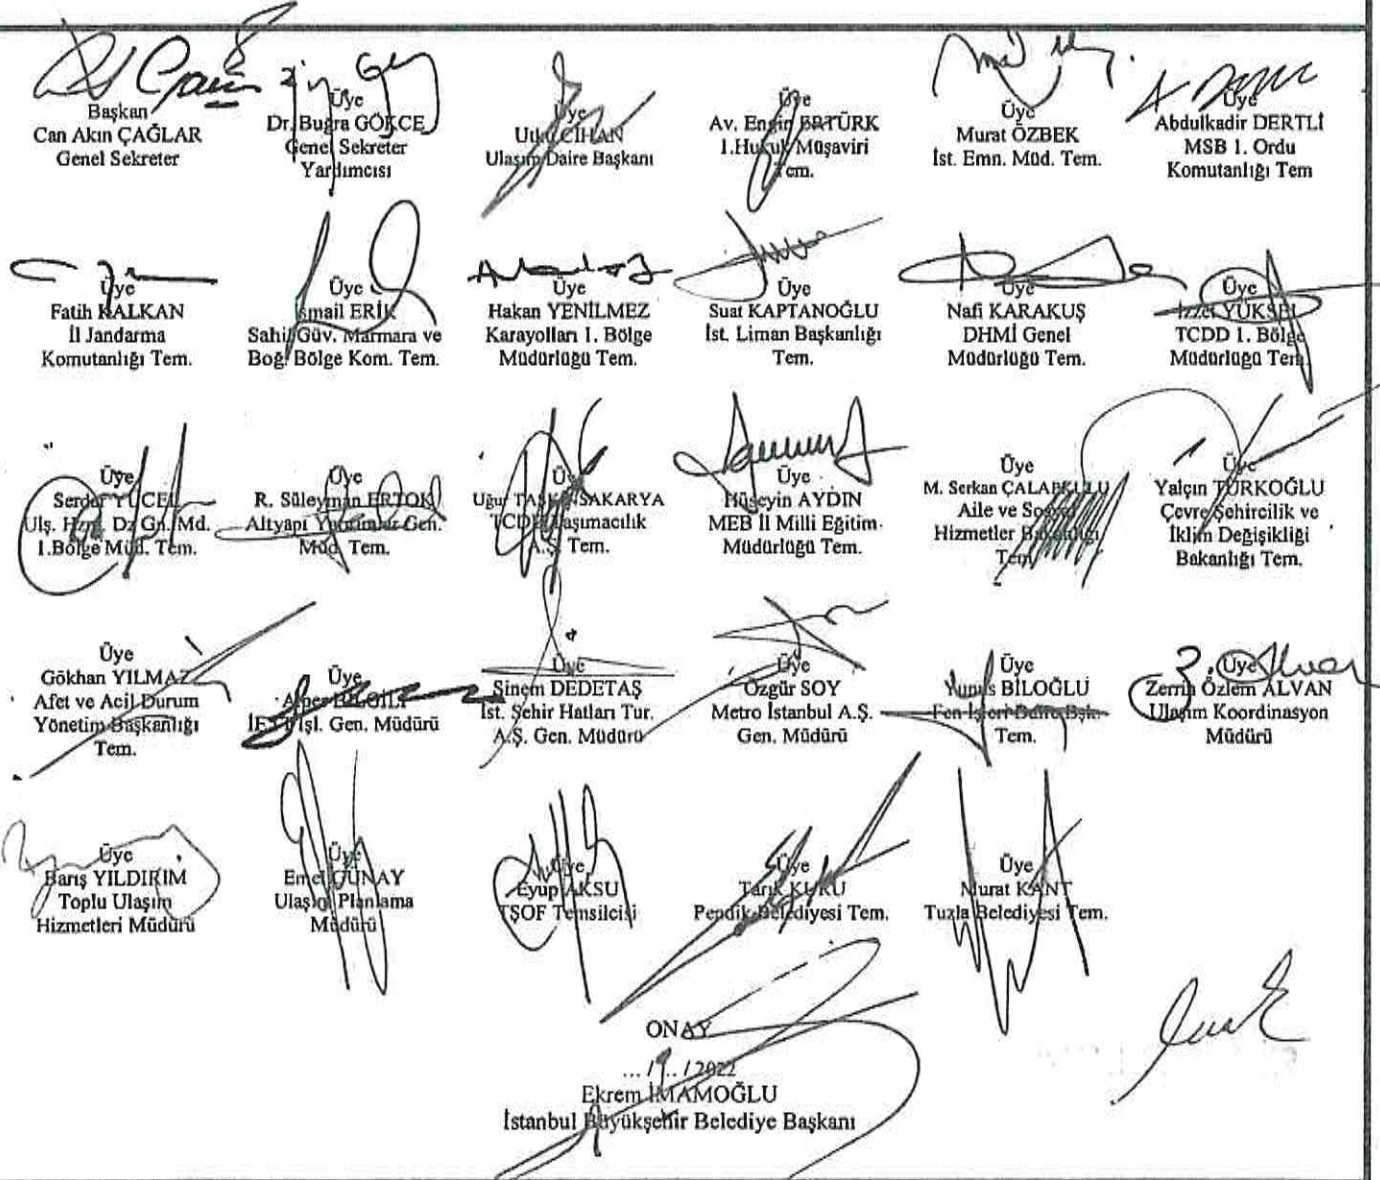 Başkan
Can Akın ÇAĞLAR
Genel Sekreter
Üye
Dr. Buğra GÖKCE
Genel Sekreter
Yardımcısı
Üye
Utku CİHAN
Ulaşım Daire Başkanı
Üye
Av. Engin ERTÜRK
1.Hukuk Müşaviri
Tem.
Üye
Murat ÖZBEK
İst. Emn. Müd. Tem.
Üye
Abdulkadir DERTLİ
MSB 1. Ordu
Komutanlığı Tem
Üye
Fatih KALKAN
İl Jandarma
Komutanlığı Tem.
Üye
İsmail ERİK
Sahil Güv. Marmara ve
Boğ. Bölge Kom. Tem.
Üye
Hakan YENİLMEZ
Karayolları 1. Bölge
Müdürlüğü Tem.
Üye
Suat KAPTANOĞLU
İst. Liman Başkanlığı
Tem.
Üye
Nafi KARAKUŞ
DHMİ Genel
Müdürlüğü Tem.
Üye
İzzet YÜKSEL
TCDD 1. Bölge
Müdürlüğü Tem.
Üye
Serdar YÜCEL
Ulş. Hzm. Dz Gn. Md.
1.Bölge Müd. Tem.
Üye
R. Süleyman ERTOK
Altyapı Yatırımlar Gen.
Müd. Tem.
Üye
Uğur SAKARYA
TCDD Taşımacılık
A.Ş. Tem.
Üye
Hüseyin AYDIN
MEB İl Milli Eğitim
Müdürlüğü Tem.
Üye
M. Serkan
Aile ve Sosyal
Hizmetler Bakanlığı
Tem.
Üye
Yalçın TÜRKOĞLU
Çevre Şehircilik ve
İklim Değişikliği
Bakanlığı Tem.
Üye
Gökhan YILMAZ
Afet ve Acil Durum
Yönetim Başkanlığı
Tem.
Üye
Alper BİLGİLİ
İETT İşl. Gen. Müdürü
Üye
Sinem DEDETAŞ
İst. Şehir Hatları Tur.
A.Ş. Gen. Müdürü
Üye
Özgür SOY
Metro İstanbul A.Ş.
Gen. Müdürü
Üye
Yunus BİLOĞLU
Fen İşleri Daire Bşk.
Tem.
Üye
Zerrin Özlem ALVAN
Ulaşım Koordinasyon
Müdürü
Üye
Barış YILDIRIM
Toplu Ulaşım
Hizmetleri Müdürü
Üye
Emel GÜNAY
Ulaşım Planlama
Müdürü
Üye
Eyup AKSU
TŞOF Temsilcisi
Üye
Tarık KURU
Pendik Belediyesi Tem.
Üye
Murat KANT
Tuzla Belediyesi Tem.
ONAY
/2022
Ekrem İMAMOĞLU
İstanbul Büyükşehir Belediye Başkanı